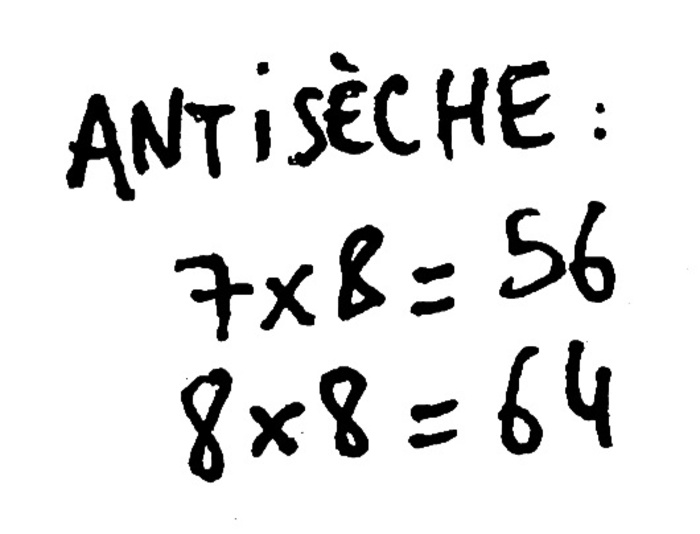 ANTiSÈCHE :
7x8 = 56
8x8 = 64